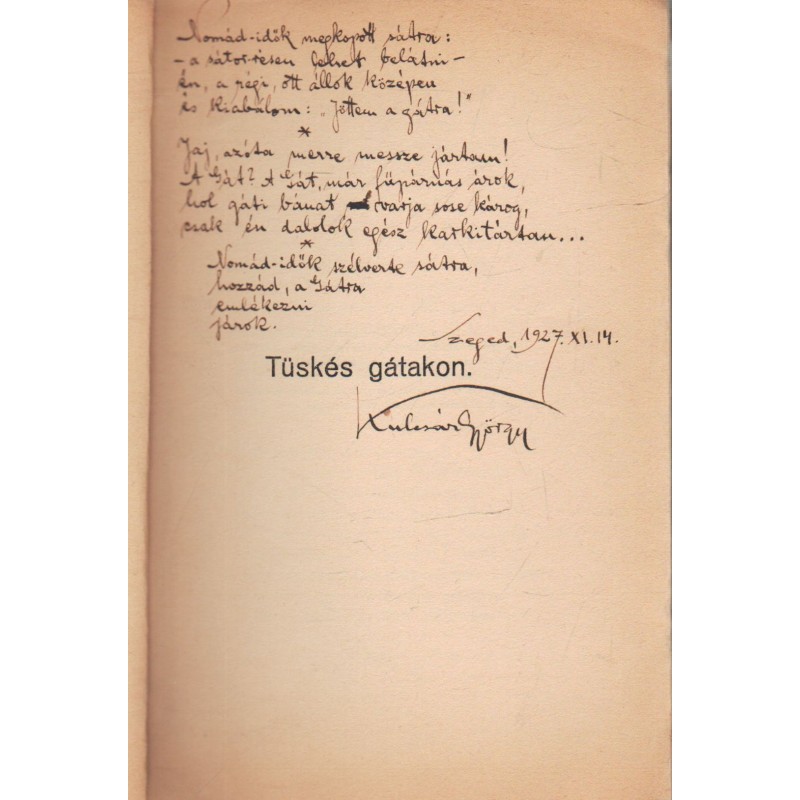 Nomád-idők megkopott sátra:
- a sátor-résen lehet belátni -
én, a régi, ott állok középen
és kiabálom: „Jöttem a gátra!"
*
Jaj, azóta merre messze jártam!
A Gát? A Gát, már fűpárnás árok,
hol gáti bánat varja sose károg,
csak én dalolok egész karkitártan...
*
Nomád-idők szélverte sátra,
hozzád, a Gátra
emlékezni
járok.
Szeged, 1927. XI. 14.
Tüskés gátakon.
Kulcsár György